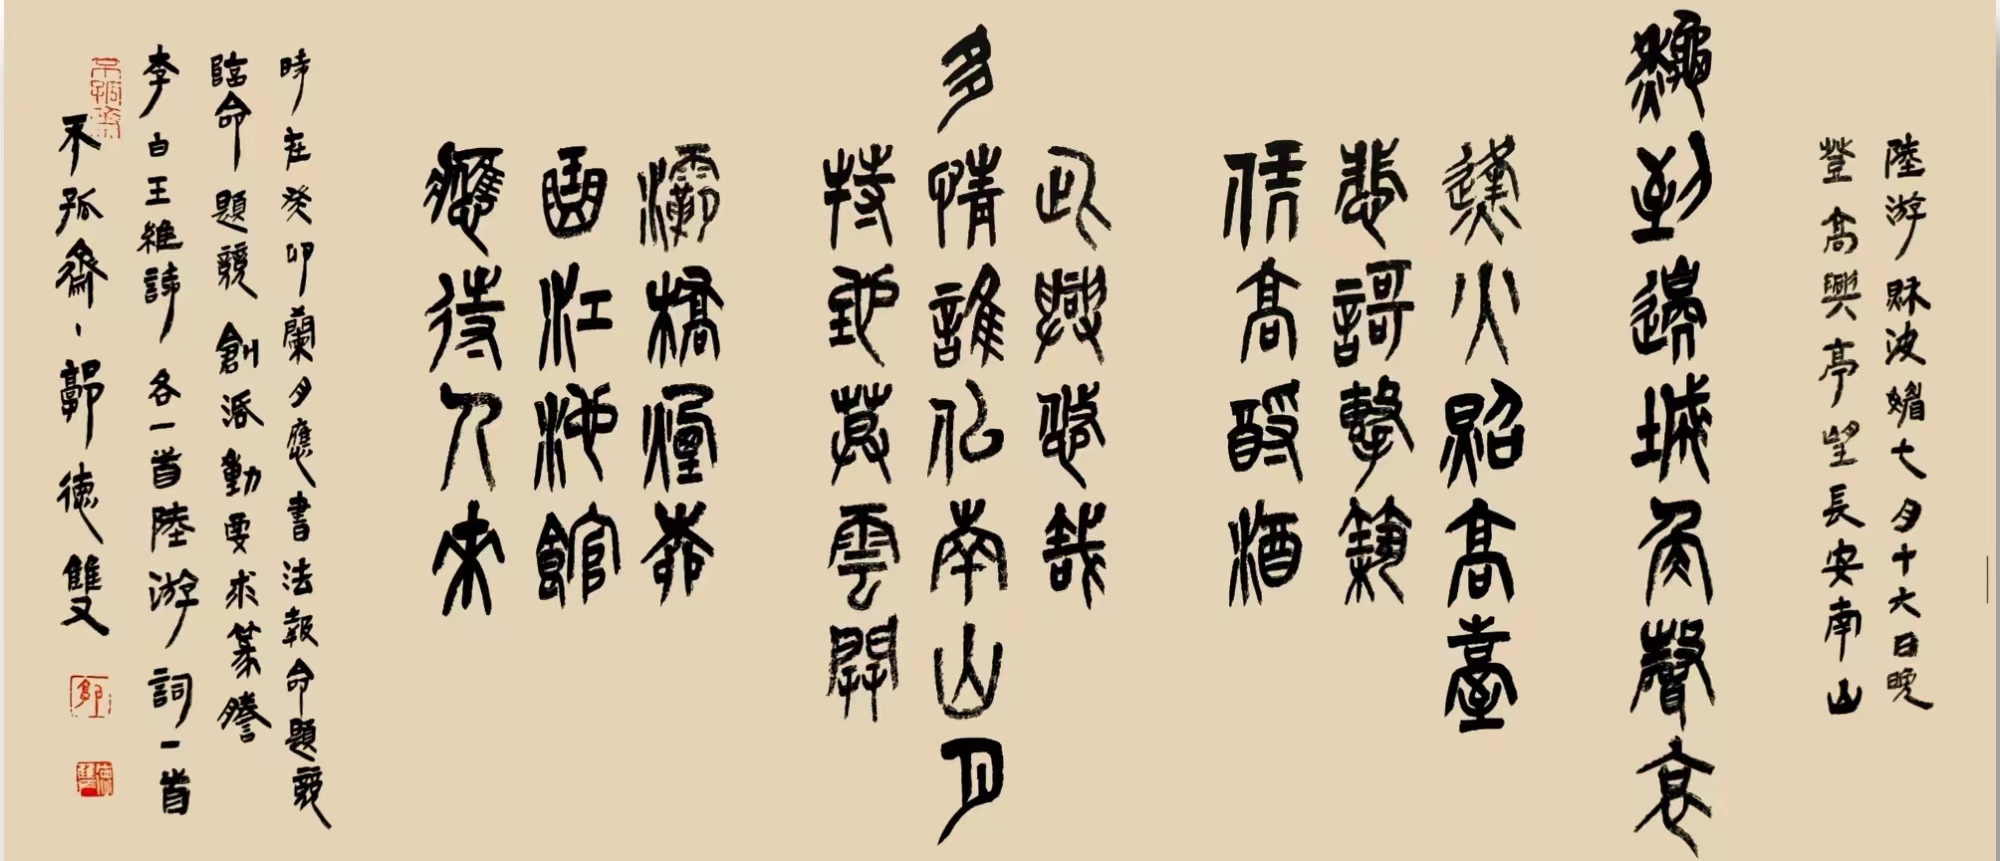 陸游秋波媚七月十六日晚
登高興亭望長安南山
秋到邊城角聲哀
烽火照高臺
悲歌擊筑
憑高酹酒
此興悠哉
多情誰似南山月
特地暮雲開
灞橋煙柳
曲江池館
應待人來
時在癸卯蘭月應書法報命題競
臨命題競創派動要求篆謄
李白王維詩各一首陸游詞一首
不孤齋、郭德雙
不孤齋
郭
德雙